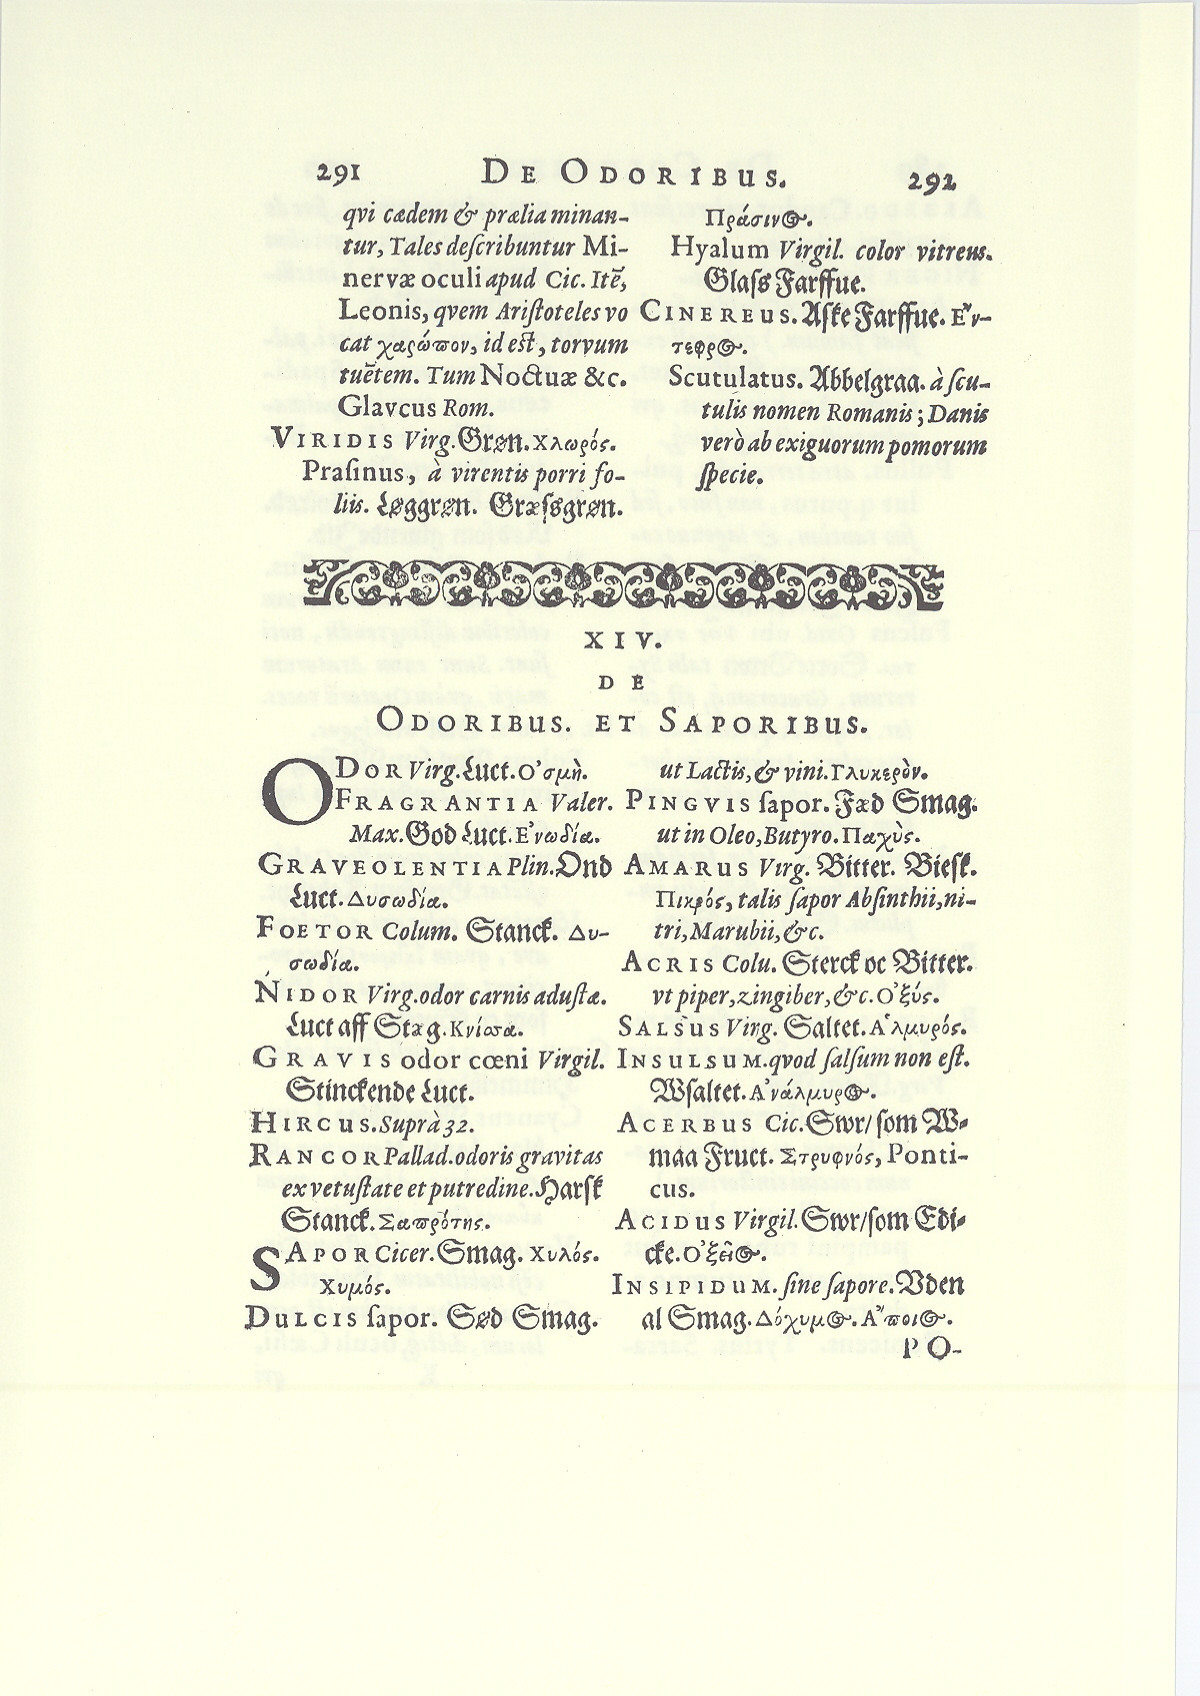 291 DE ODORIBUS. 292
qvi cædem & prælia minan-
tur, Tales deſcribuntur Mi-
nervæ oculi apud Cic. Itẽ,
Leonis, qvem Ariſtoteles vo
cat χαρώπον, id est, torvum
tuẽtem. Tum Noctuæ &c.
Glavcus Rom.
VIRIDIS Virg. Grøn. Χλωρός.
Praſinus, à virentis porri fo-
liis. Løggrøn. Græſsgrøn.
Πράσινος.
Hyalum Virgil. color vitreus.
Glaſs Farffue.
CINEREUS. Aſke Farffue. Εν-
τεφρος.
Scutulatus. Abbelgraa. à ſcu-
tulis nomen Romanis; Danis
verò ab exiguorum pomorum
ſpecie.
XIV.
DE
ODORIBUS. ET SAPORIBUS.
ODOR Virg. Luct. Ο'σμὴ.
FRAGRANTIA Valer.
Max. God Luct. Ε'υωδία.
GRAVEOLENTIA Plin. Ond
Luct. Δυσωδία.
FOETOR Colum. Stanck. Δυ-
σωδία.
NIDOR Virg. odor carnis aduſtæ.
Luct aff Stæg. Κνίσσα.
GRAVIS odor cœni Virgil.
Stinckende Luct.
HIRCUS. Suprà 32.
RANCOR Pallad. odoris gravitas
ex vetuſtate et putredine. Harſk
Stanck. Σαπρότης.
SAPOR Cicer. Smag. Χυλός.
Χυμός.
DULCIS ſapor. Sød Smag.
ut Lactis, & vini. Γλυκερὸν.
PINGVIS ſapor. Fæd Smag.
ut in Oleo, Butyro. Παχὺς.
AMARUS Virg. Bitter. Bieſk.
Πικρός, talis ſapor Abſinthii, ni-
tri, Marubii, &c.
ACRIS Colu. Sterck oc Bitter.
vt piper, zingiber, &c. Ο'ξύς.
SALSUS Virg. Saltet. Α'λμυρός.
INSULSUM. qvod ſalſum non eſt.
Wſaltet. Α'νάλμυρος.
ACERBUS Cic. Swr/ ſom W-
maa Fruct. Στρυφνός, Ponti-
cus.
ACIDUS Virgil. Swr/ ſom Edi-
cke. Ο'ξῶος.
INSIPIDUM. ſine ſapore. Vden
al Smag. Δόχυμος. Α"ποιος.
PO-